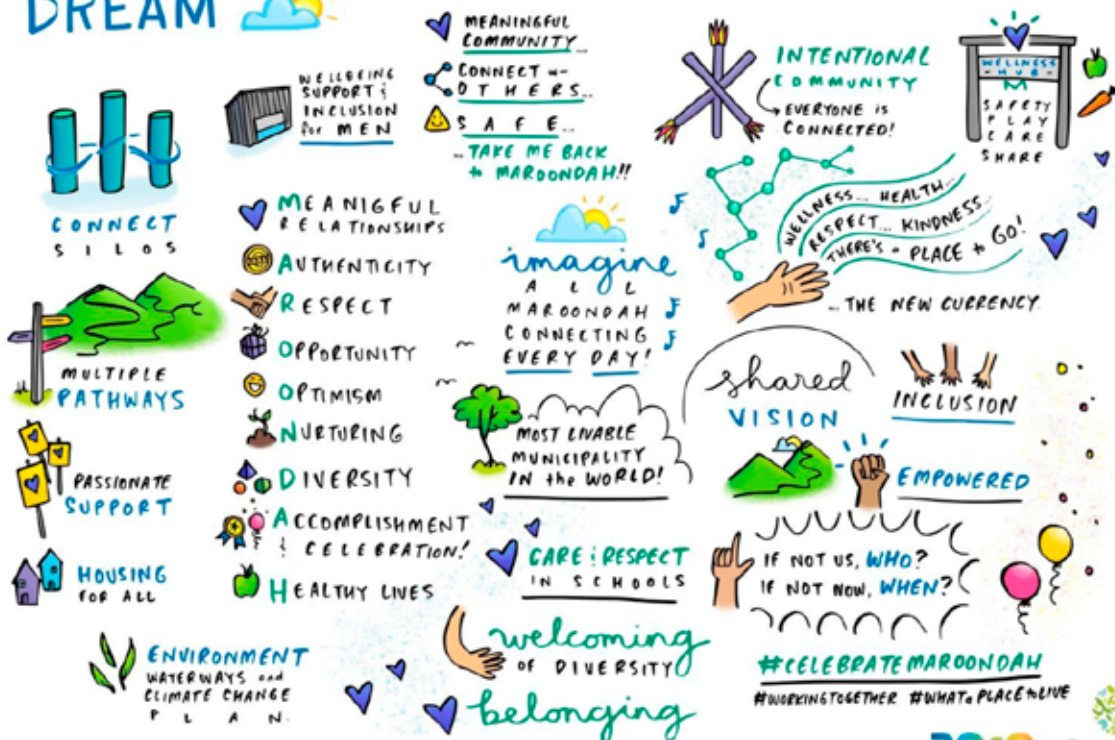 DREAM
CONNECT
SILOS
MULTIPLE
PATHWAYS
PASSIONATE
SUPPORT
HOUSING
FOR ALL
ENVIRONMENT
WATERWAYS and
CLIMATE CHANGE
PLAN.
WELLBEING
SUPPORT &
INCLUSION
for MEN
MEANIGFUL
RELATIONSHIPS
AUTHENTICITY
RESPECT
OPPORTUNITY
OPTIMISM
NURTURING
DIVERSITY
ACCOMPLISHMENT
& CELEBRATION!
HEALTHY LIVES
MEANINGFUL
COMMUNITY...
CONNECT w-
OTHERS...
SAFE...
...TAKE ME BACK
to MAROONDAH!!
imagine
ALL
MAROONDAH
CONNECTING
EVERY DAY!
MOST LIVABLE
MUNICIPALITY
IN the WORLD!
CARE & RESPECT
IN SCHOOLS
welcoming
OF DIVERSITY
belonging
INTENTIONAL
COMMUNITY
EVERYONE is
CONNECTED!
WELLNESS
-HUB-
SAFETY
PLAY
CARE
SHARE
WELLNESS... HEALTH...
RESPECT... KINDNESS...
THERE'S a PLACE to GO!
...THE NEW CURRENCY.
shared
VISION
INCLUSION
EMPOWERED
IF NOT US, WHO?
IF NOT NOW, WHEN?
#CELEBRATEMAROONDAH
#WORKINGTOGETHER #WHATaPLACEtoLIVE